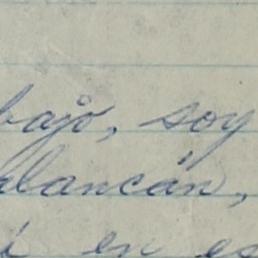 bajo, soy
alancán,
en es